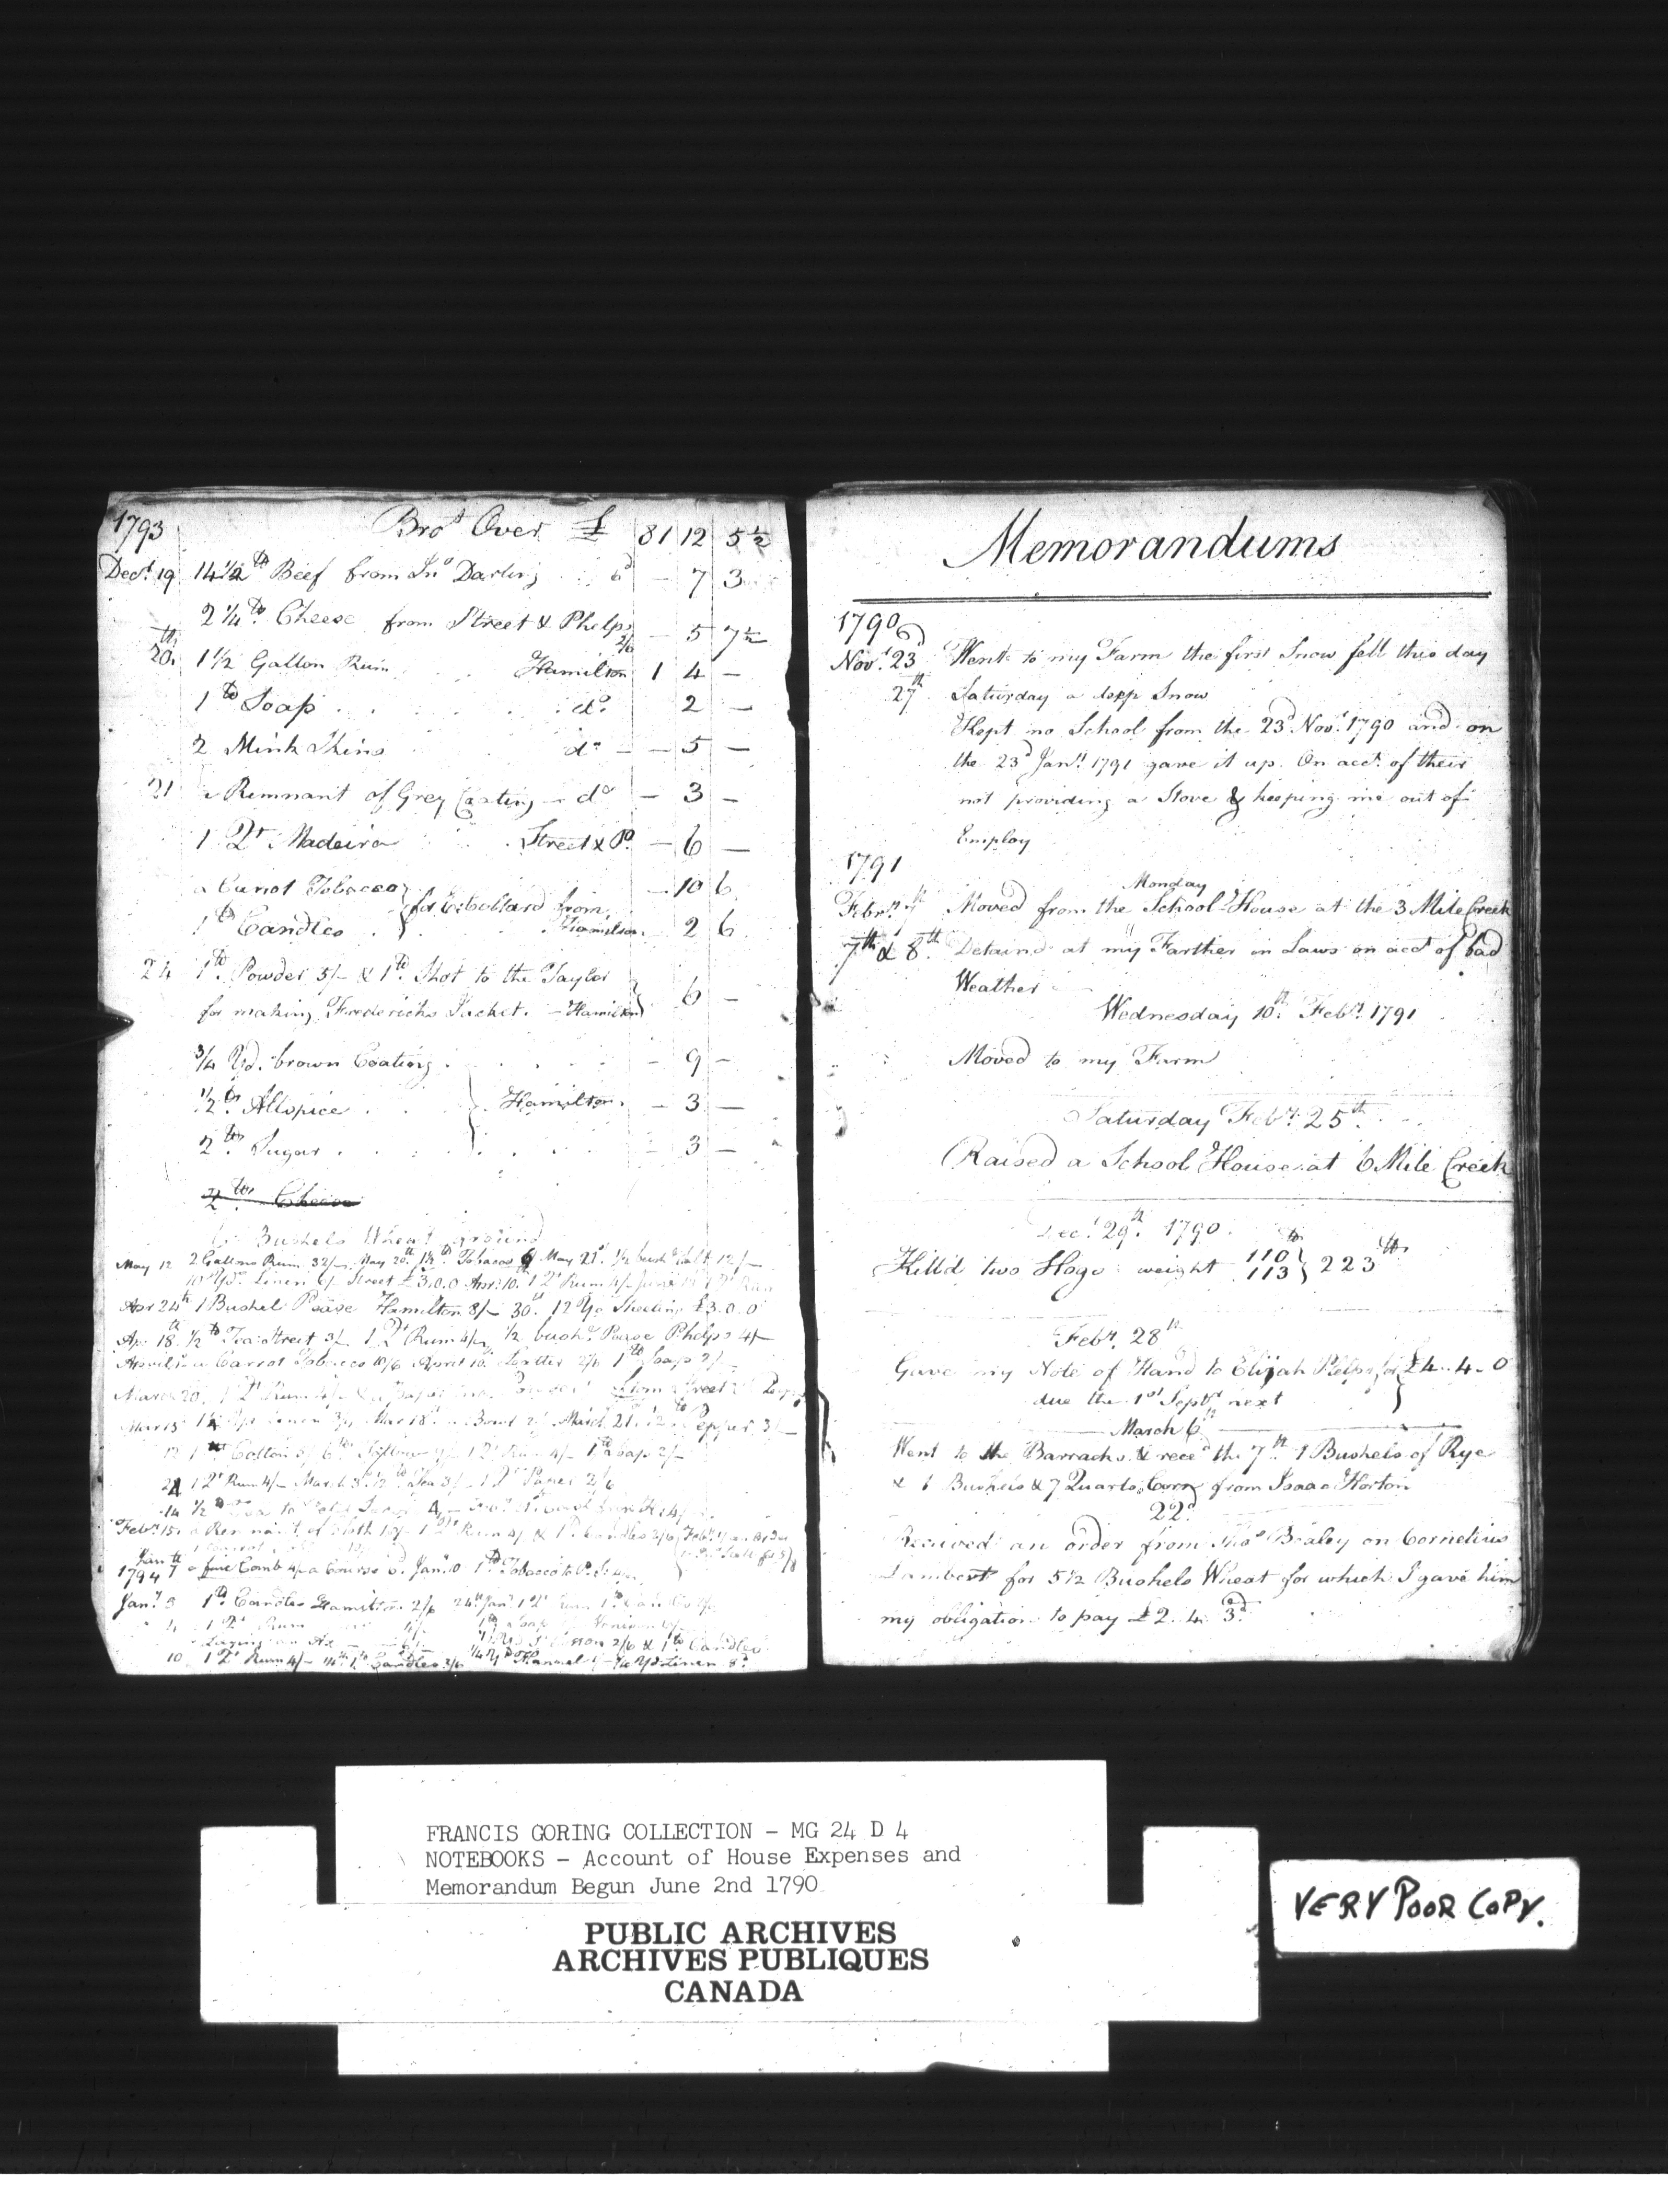 1793 Bro.t Over £ 81 12 5½
Dec.r 19 14½ lb Beef from Jn.o Darling 6d — 7 3
2¼ lb Cheese from Street & Phelps 2/6 — 5 7½
20th 1½ Gallon Rum Hamilton 1 4 —
1 lb Soap . . . do 2 —
2 Mink Skins do — — 5 —
21 a Remnant of Grey Coating — do — 3 —
1 Qt Madeira Street & P. — 6 —
a Carrot Tobacco } — 10 6
1 lb Candles } for from Hamilton 2 6
24 1 lb Powder 5/- & 1 lb Shot to the Taylor
for making Fredericks Jacket. — Hamilton } 6 —
¾ Yd. brown Coating . . . — 9 —
½ lb Allspice . . } Hamilton. — 3 —
2 lb Sugar . . . — 3 —
2 lb Cheese
6 Bushels Wheat ground
May 12 2 Gallons Rum 32/- May 20th 1½ lb Tobacco May 21st ½ bush Salt 12/-
10 Yds Linen 6/- Street £3.0.0 10th 1 Qt Rum 4/- June
Apr 24th 1 Bushel Pease Hamilton 8/- 30th 12 Yds Sheeting £3.0.0
Ap. 18 ½ lb Tea Street 3/- 1 Qt Rum 4/- ½ bush. Pease Phelps 4/-
April a Carrot Tobacco 10/6 April 10 2/6 1 lb Soap 2/-
March 20 1 Qt Rum 4/- from Street
Mar 15 Linen 3/- Mar 18th March 21 Pepper 3/-
12 1 lb Cotton 5/- 6 lb 1 Qt Rum 4/- 1 lb Soap 2/-
24 1 Qt Rum 4/- March 3d ½ lb Tea 3/- 1 Qr Paper 2/6
14 ½ lb Tea
Feb.y 15 a Remnant of Cloth 10/- 1 Qt Rum 4/- & 1 lb Candles 2/6 Feb.y an order
Jan
1794 7 a fine Comb 4/- a Course 1 lb Tobacco
Jan.y 3 1 lb Candles Hamilton 2/6 24th Jan.y 1 Qt Rum
4 1 Qt Rum 4/- 1 lb Soap
Laying an Ax 2/6 & 1 lb Candles
10 1 Qt Rum 4/- 1 lb Candles ¼ Yd Flannel Linen
Memorandums
1790
Nov.r 23d Went to my Farm the first Snow fell this day
27th Saturday a depp Snow
Kept no School from the 23d Nov.r 1790 and on
the 23d Jan.y 1791 gave it up. On acct. of their
not providing a Stove & keeping me out of
Employ
1791
Monday
Feb.ry 7th Moved from the School-House at the 3 Mile Creek
7th & 8th Detained at my Farther in Laws on acct of bad
Weather
Wednesday 10th Feb.ry 1791
Moved to my Farm
Saturday Feb.ry 25th
Raised a School House at 6 Mile Creek
Dec.r 29th 1790
Killd two Hogs weight 110 lb
113 } 223 lb
Feb.ry 28th
Gave my Note of Hand to Elijah Phelps for £4..4..0
due the 1st Septr next }
March 6th
Went to the Barracks & recd the 7th 1 Bushels of Rye
& 1 Bushels & 7 Quarts Corn from Isaac Horton
22d
Received an order from Tho.s Bealey on Cornelius
Lambert for 5½ Bushels Wheat for which I gave him
my obligation to pay £2..4..3d
FRANCIS GORING COLLECTION - MG 24 D 4
NOTEBOOKS - Account of House Expenses and
Memorandum Begun June 2nd 1790
PUBLIC ARCHIVES
ARCHIVES PUBLIQUES
CANADA
VERY POOR COPY.